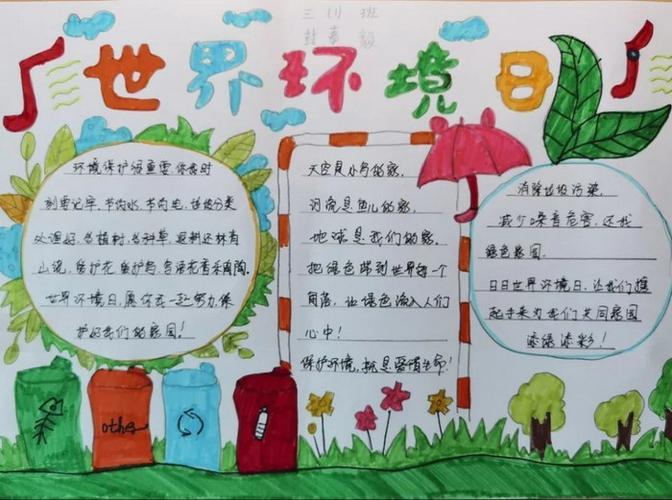 三(1)班
世界环境日
环境保护很重要 你我时
刻要记牢,节约水,节约电,垃圾分类
处理好,多植树,多种草,退耕还林有
山说,爱护花,爱护鸟,鸟语花香乐陶陶。
世界环境日,愿你我一起努力,保
护好我们的家园!
天空是小鸟的家,
河流是鱼儿的家,
地球是我们的家,
把绿色带到世界每一个
角落,让绿色流入人们
心中!
保护环境,就是爱惜生命!
消除垃圾污染,
减少噪音危害,还我
绿色家园。
日日世界环境日,让我们携
起手来为我们共同家园
添绿添彩!
other